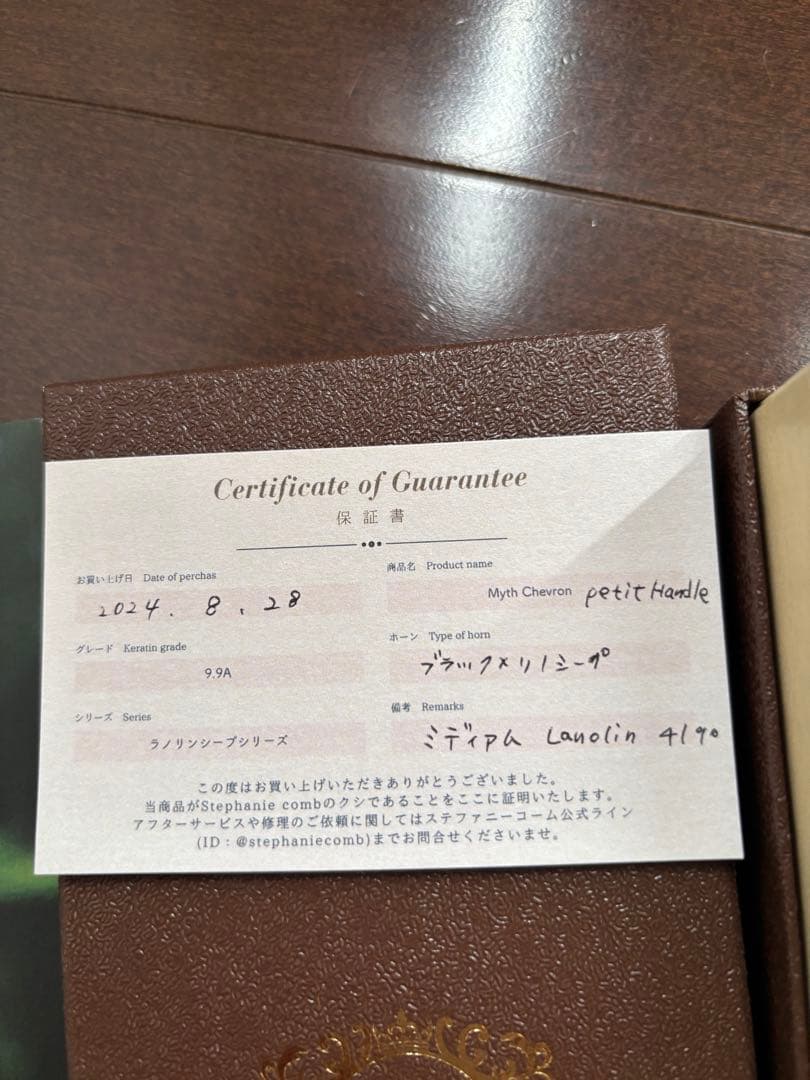 Certificate of Guarantee
保証書
お買い上げ日 Date of perchas
2024. 8. 28
商品名 Product name
Myth Chevron petit Handle
グレード Keratin grade
9.9A
ホーン Type of horn
ブラック×リノシープ
シリーズ Series
ラノリンシープシリーズ
備考 Remarks
ミディアム Lanolin
この度はお買い上げいただきありがとうございました。
当商品がStephanie combのクシであることをここに証明いたします。
アフターサービスや修理のご依頼に関してはステファニーコーム公式ライン
(ID:@stephaniecomb)までお問合せくださいませ。